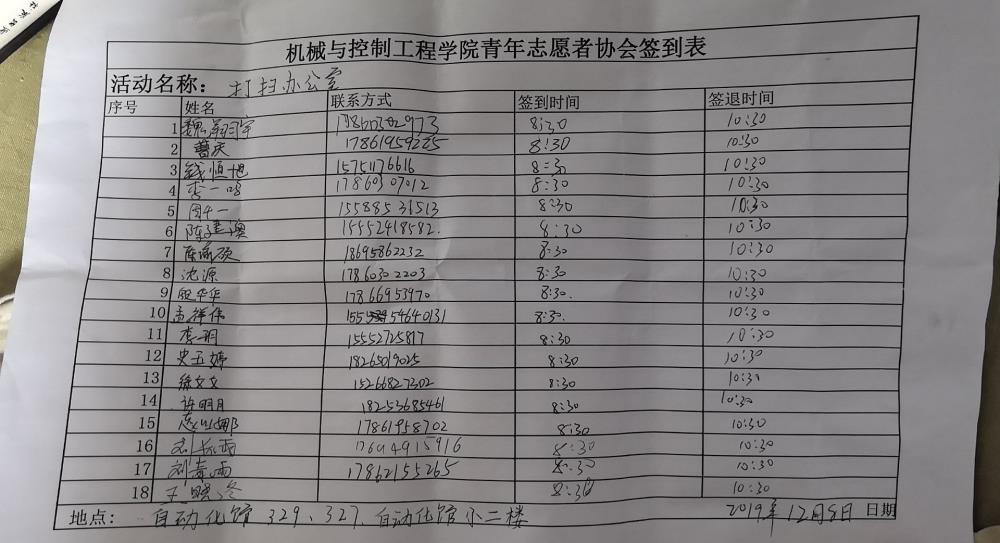 机械与控制工程学院青年志愿者协会签到表
活动名称：打扫办公室
序号 姓名 联系方式 签到时间 签退时间
1 17860302973 8:30 10:30
2 曹庆 17861959225 8:30 10:30
3 钱恒旭 15751176616 8:30 10:30
4 李一鸣 17860307012 8:30 10:30
5 周千一 15588536513 8:30 10:30
6 陈建澳 15552418582. 8:30 10:30
7 18695862232 8:30 10:30
8 沈源 1786302203 8:30 10:30
9 殷华华 17866953970 8:30. 10:30
10 孟祥伟 15554640131 8:30. 10:30
11 李玥 15552725817 8:30 10:30
12 史玉婷 18265019025 8:30 10:30
13 徐文文 15266827302 8:30 10:30
14 许明月 18253685461 8:30 10:30
15 17861958702 8:30 10:30
16 17694915916 8:30 10:30
17 刘春雨 17862155265 8:30 10:30
18 王晓冬 8:30 10:30
地点： 自动化馆 329、327、自动化馆小二楼 2019年12月8日 日期